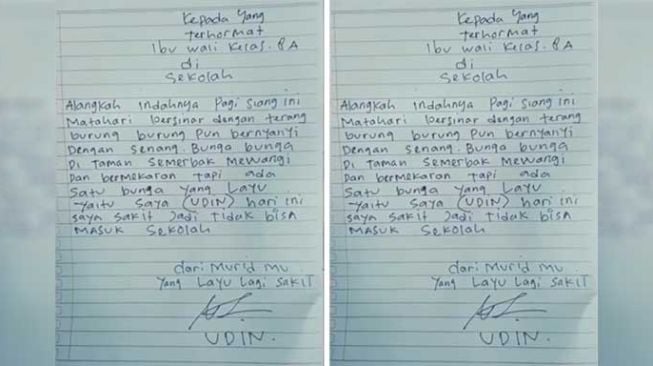 Kepada Yang
terhormat
Ibu wali Kelas. 8A
di
Sekolah
Alangkah indahnya Pagi Siang ini
Matahari bersinar dengan terang
burung burung Pun bernyanyi
Dengan senang. Bunga bunga
Di Taman Semerbak Mewangi
Dan bermekaran tapi ada
Satu bunga Yang Layu
Yaitu Saya (UDIN) hari ini
saya sakit Jadi Tidak bisa
MASUK Sekolah
dari Murid mu
Yang Layu Lagi SAKIT
UDIN.
Kepada Yang
terhormat
Ibu wali Kelas. 8A
di
Sekolah
Alangkah indahnya Pagi Siang ini
Matahari bersinar dengan terang
burung burung Pun bernyanyi
Dengan senang. Bunga bunga
Di Taman Semerbak Mewangi
Dan bermekaran tapi ada
Satu bunga Yang Layu
Yaitu Saya (UDIN) hari ini
saya sakit Jadi Tidak bisa
MASUK Sekolah
dari Murid mu
Yang Layu Lagi SAKIT
UDIN.